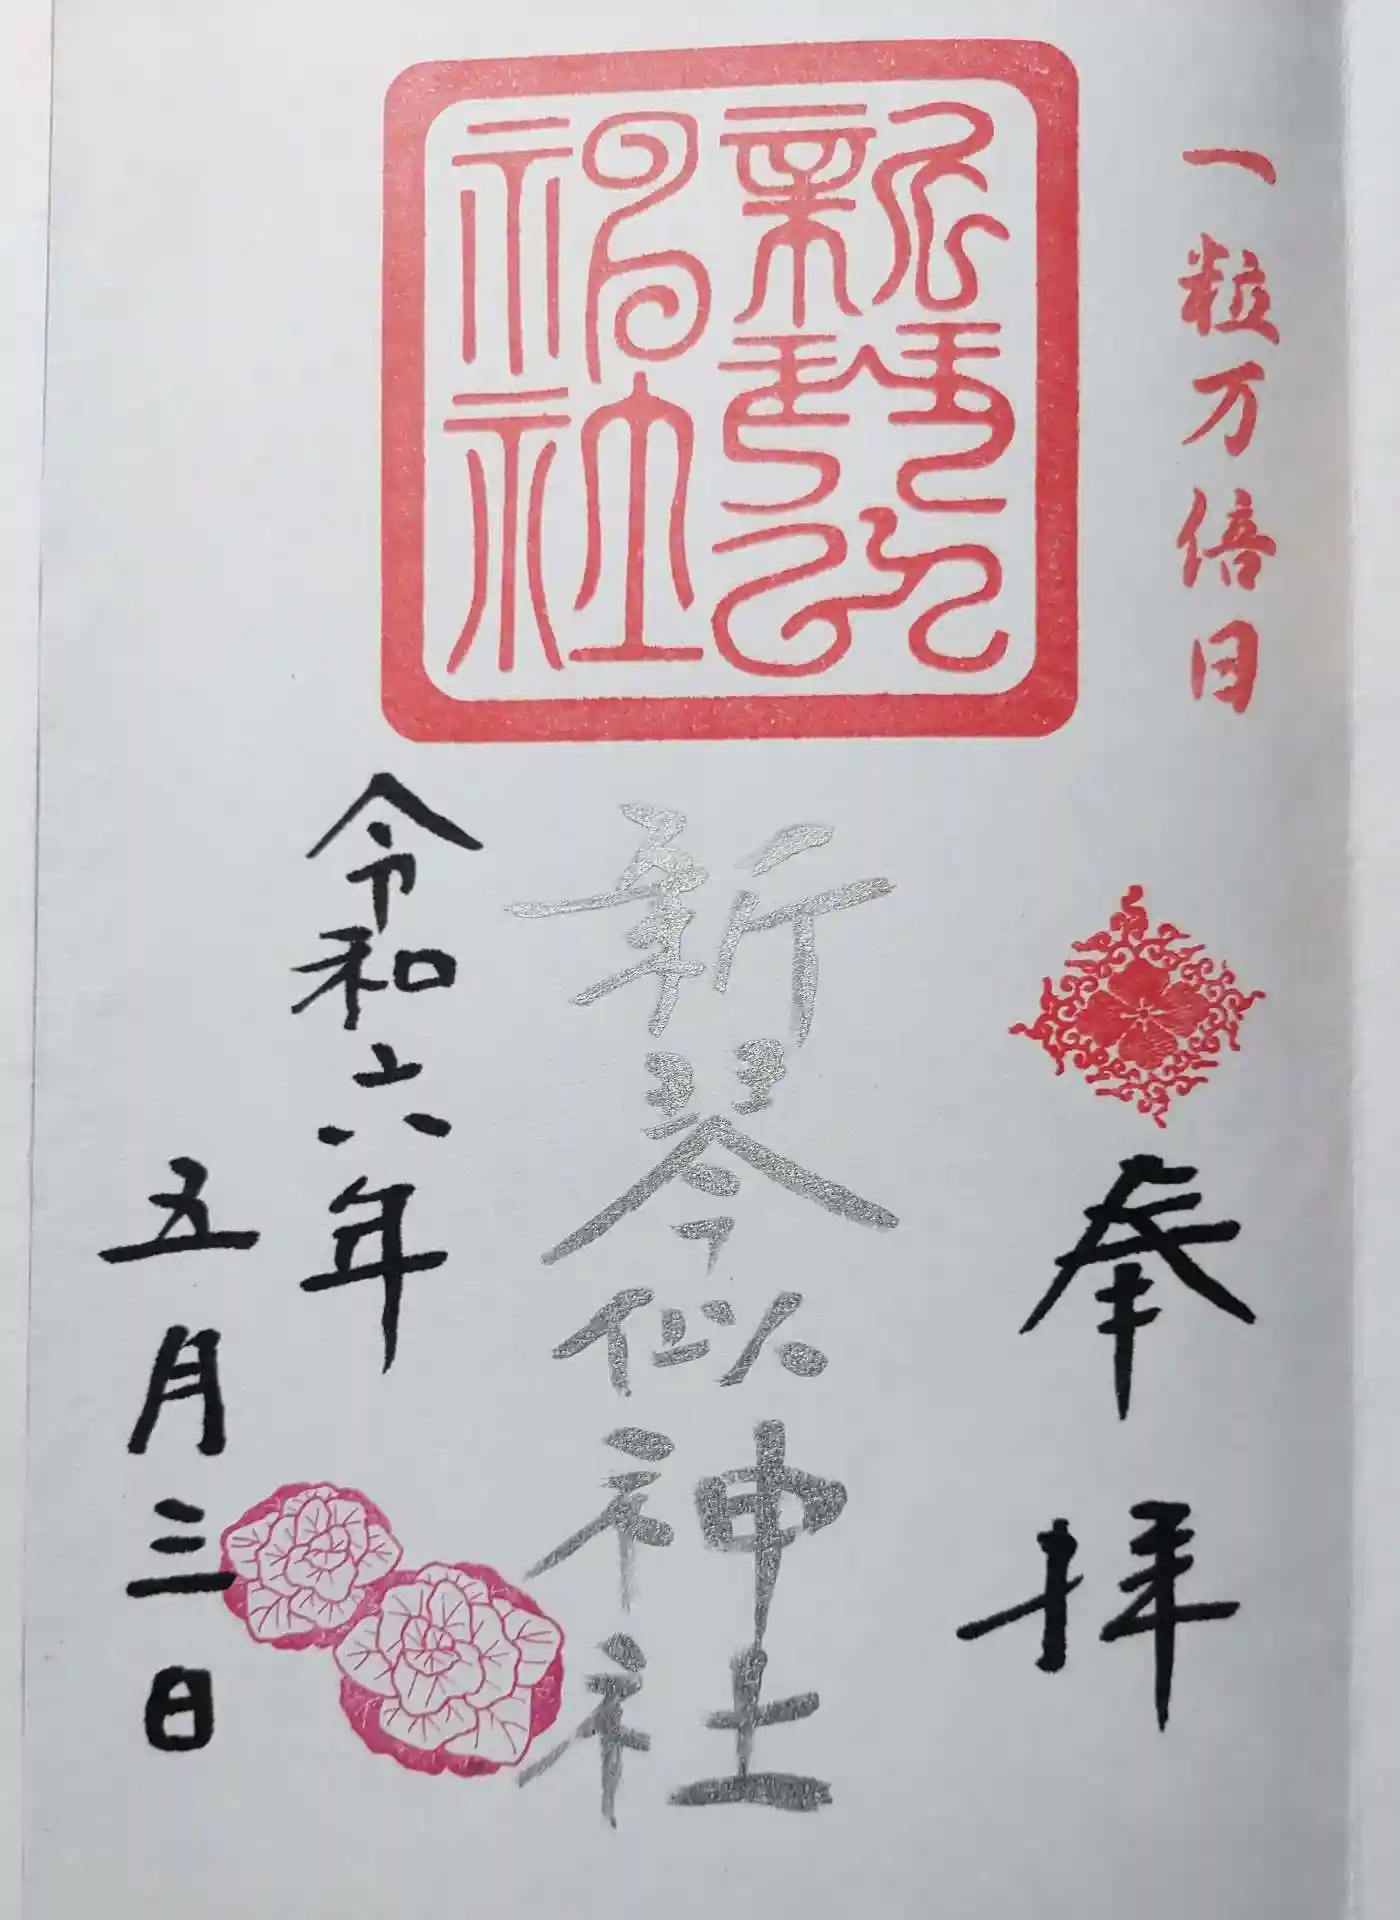 一粒万倍日
奉拝
新琴似神社
新琴似神社
令和六年
五月三日